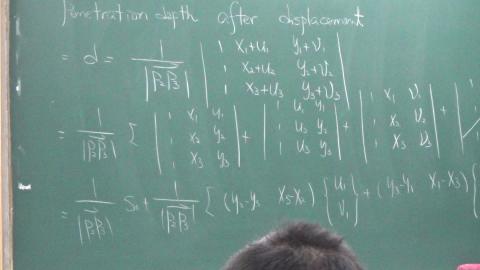 Penetration depth after displacement
= d = 1 / |P₂P₃| | 1 x₁+u₁ y₁+v₁ ; 1 x₂+u₂ y₂+v₂ ; 1 x₃+u₃ y₃+v₃ |
= 1 / |P₂P₃| [ | 1 x₁ y₁ ; 1 x₂ y₂ ; 1 x₃ y₃ | + | 1 u₁ y₁ ; 1 u₂ y₂ ; 1 u₃ y₃ | + | 1 x₁ v₁ ; 1 x₂ v₂ ; 1 x₃ v₃ | +
= 1 / |P₂P₃| S₀ + 1 / |P₂P₃| [ (y₂-y₃ x₃-x₂) { u₁ ; v₁ } + (y₃-y₁ x₁-x₃) {